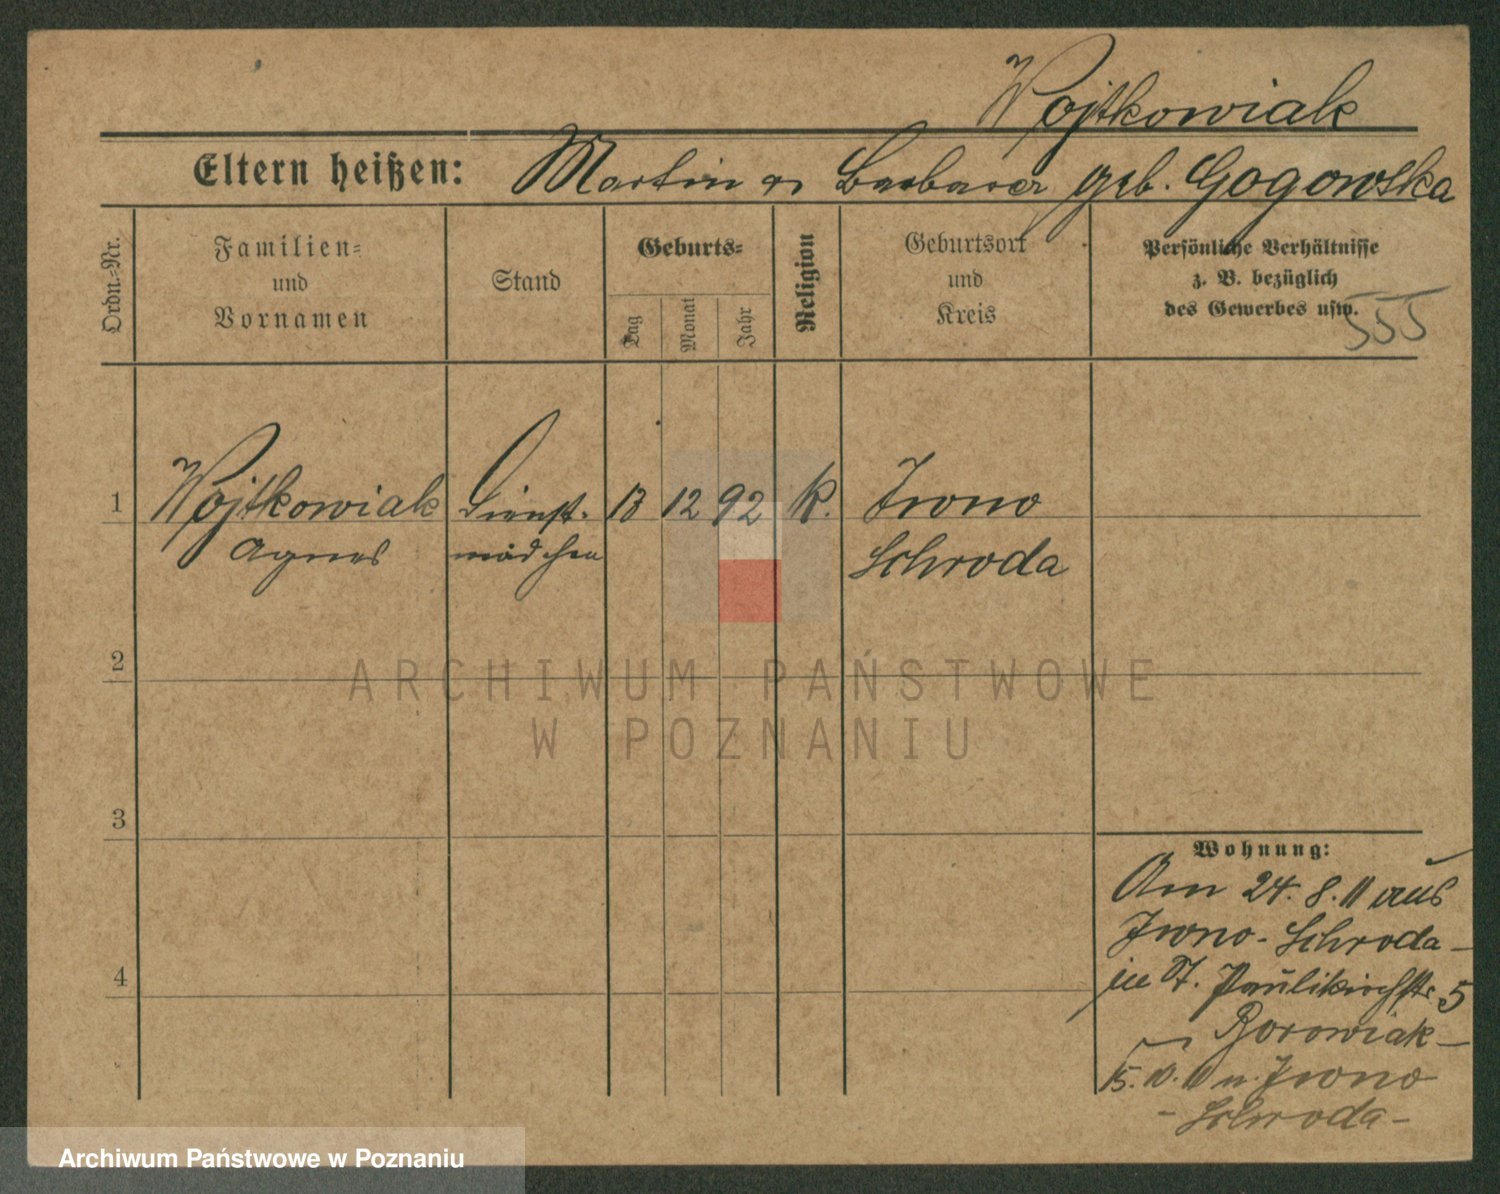 Wojtkowiak
Eltern heißen: Martin u Barbara geb. Gogowska
Ordn.-Nr.
Familien-
und
Vornamen
Stand
Geburts-
Tag
Monat
Jahr
Religion
Geburtsort
und
Kreis
Persönliche Verhältnisse
z. B. bezüglich
des Gewerbes usw.
555
1
Wojtkowiak
Agnes
Dienst-
mädchen
13
12
92
k.
Iwno
Schroda
2
3
4
Wohnung:
Am 24. 8. 11 aus
Iwno - Schroda -
in St. Paulikirchstr. 5
Borowiak -
15. 10. 11 n. Iwno
- Schroda -
ARCHIWUM PAŃSTWOWE
W POZNANIU
Archiwum Państwowe w Poznaniu